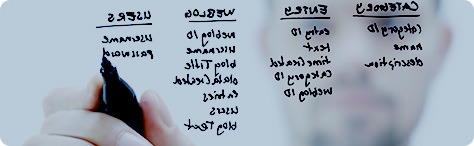 USERS
username
password
WEBLOG
weblog ID
username
blog Title
dateCreated
Entries
users
blog Text
ENTRY
entry ID
text
timeCreated
category ID
weblog ID
CATEGORY
category ID
name
description